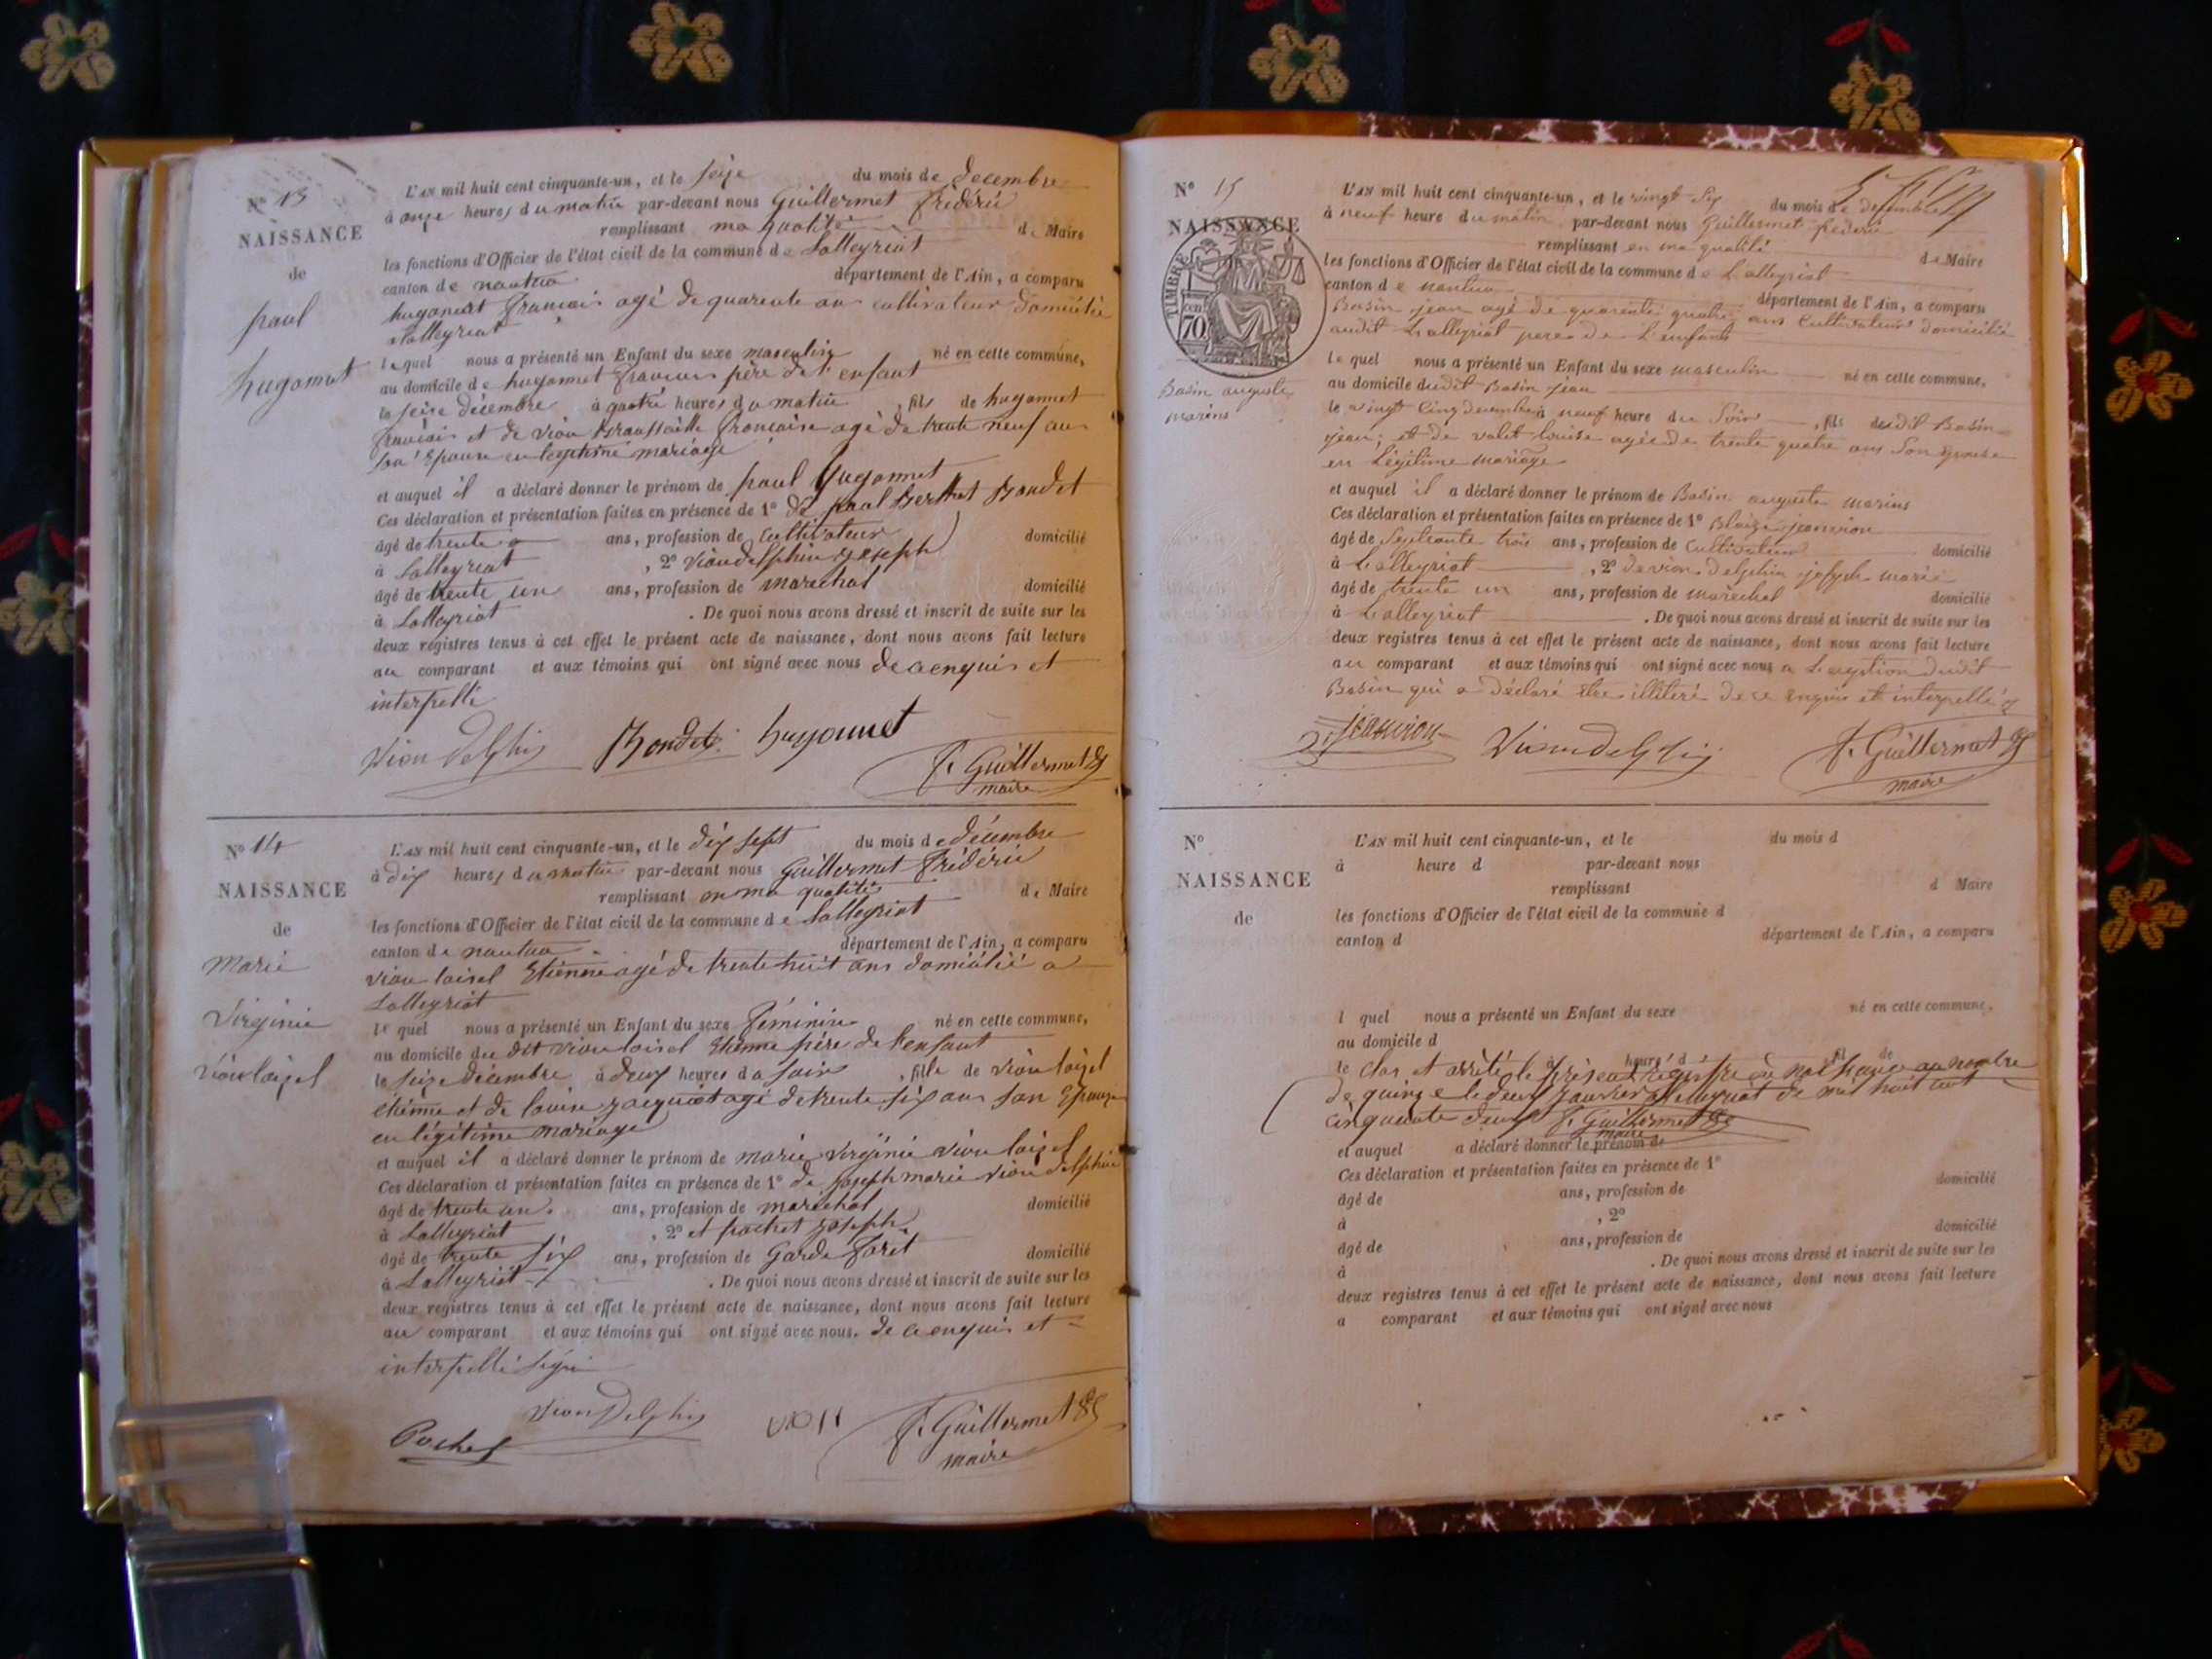 N° 13
NAISSANCE
de
paul
hugonnet
L'AN mil huit cent cinquante-un, et le seize du mois de decembre
à onze heures du matin par-devant nous Guillermet frédéric
remplissant ma qualité de Maire
les fonctions d'Officier de l'état civil de la commune de Lalleyriat
canton de nantua département de l'Ain, a comparu
hugonnet francois agé de quarente ans cultivateur domicilié
a lalleyriat
lequel nous a présenté un Enfant du sexe masculin né en cette commune,
au domicile de hugonnet francois père de l'enfant
le seize décembre à quatre heures du matin, fils de hugonnet
francois et de vion francoise agé de trente neuf ans
son Epouse en legitime mariage
et auquel il a déclaré donner le prénom de paul hugonnet
Ces déclaration et présentation faites en présence de 1° de paul Berthet Bondet
âgé de trente ans, profession de cultivateur domicilié
à Lalleyriat, 2° viondelphin joseph
âgé de trente un ans, profession de marechal domicilié
à Lalleyriat. De quoi nous avons dressé et inscrit de suite sur les
deux registres tenus à cet effet le présent acte de naissance, dont nous avons fait lecture
au comparant et aux témoins qui ont signé avec nous de ce enquis et
interpellé
Vion delphin Bondet hugonnet
F. Guillermet
maire
N° 14
NAISSANCE
de
Marie
Virginie
Vion loisel
L'AN mil huit cent cinquante-un, et le dix sept du mois de décembre
à dix heures du matin par-devant nous Guillermet frédéric
remplissant en ma qualité de Maire
les fonctions d'Officier de l'état civil de la commune de Lalleyriat
canton de nantua département de l'Ain, a comparu
vion loisel Etienne agé de trente huit ans domicilié a
Lalleyriat
le quel nous a présenté un Enfant du sexe féminin né en cette commune,
au domicile du dit vion loisel Etienne père de l'enfant
le seize décembre à deux heures du soir, fille de vion loisel
étienne et de louise jacquiot agé de trente six ans son Epouse
en légitime mariage
et auquel il a déclaré donner le prénom de marie virginie vion loisel
Ces déclaration et présentation faites en présence de 1° de joseph marie vion delphin
âgé de trente un ans, profession de maréchal domicilié
à Lalleyriat, 2° et pochet joseph
âgé de trente six ans, profession de Garde foret domicilié
à Lalleyriat. De quoi nous avons dressé et inscrit de suite sur les
deux registres tenus à cet effet le présent acte de naissance, dont nous avons fait lecture
au comparant et aux témoins qui ont signé avec nous. de ce enquis et
interpellé signé
Vion Delphin
Pochet
F. Guillermet
maire
N° 15
NAISSANCE
TIMBRE
70 cent
Basin auguste
marins
L'AN mil huit cent cinquante-un, et le vingt six du mois de decembre
à neuf heure du matin par-devant nous Guillermet frederic
remplissant en ma qualité de Maire
les fonctions d'Officier de l'état civil de la commune de Lalleyriat
canton de nantua département de l'Ain, a comparu
Basin jean agé de quarente quatre ans Cultivateur domicilié
audit Lalleyriat pere de l'enfant
le quel nous a présenté un Enfant du sexe masculin né en cette commune,
au domicile dudit Basin jean
le vingt cinq decembre à neuf heure du Soir, fils dudit Basin
jean, et de valet louise agée de trente quatre ans Son epouse
en Légitime mariage
et auquel il a déclaré donner le prénom de Basin auguste marins
Ces déclaration et présentation faites en présence de 1° Blaize jeanvion
âgé de Septeante trois ans, profession de Cultivateur domicilié
à Lalleyriat, 2° de vion delphin joseph marie
âgé de trente un ans, profession de marechal domicilié
à Lalleyriat. De quoi nous avons dressé et inscrit de suite sur les
deux registres tenus à cet effet le présent acte de naissance, dont nous avons fait lecture
au comparant et aux témoins qui ont signé avec nous a L'exeption dudit
Basin qui a Déclaré être illiteré de ce enquis et interpellé
jeanvion Viondelphin F. Guillermet
maire
N°
NAISSANCE
de
L'AN mil huit cent cinquante-un, et le du mois d
à heure d par-devant nous
remplissant d Maire
les fonctions d'Officier de l'état civil de la commune d
canton d département de l'Ain, a comparu
l quel nous a présenté un Enfant du sexe né en cette commune,
au domicile d
le à heure d, fil de
Clos et arrêté le présent registre de naissance au nombre
de quinze le deux janvier a Lalleyriat de mil huit cent
cinquante deux F. Guillermet
maire
et auquel a déclaré donner le prénom de
Ces déclaration et présentation faites en présence de 1°
âgé de ans, profession de domicilié
à , 2°
âgé de ans, profession de domicilié
à . De quoi nous avons dressé et inscrit de suite sur les
deux registres tenus à cet effet le présent acte de naissance, dont nous avons fait lecture
a comparant et aux témoins qui ont signé avec nous